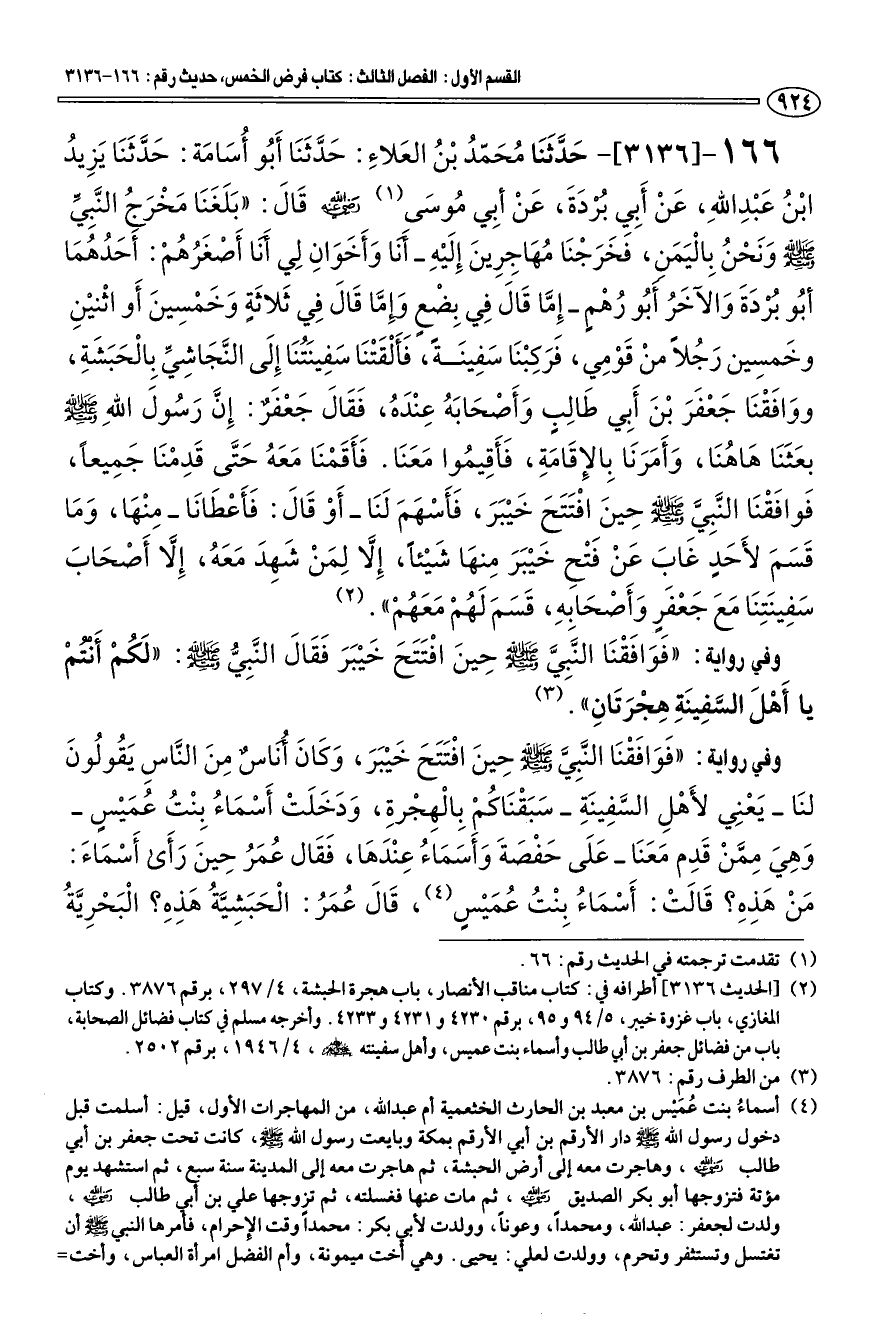 القسم الأول: الفصل الثالث: كتاب فرض الخمس، حديث رقم: ١٦٦-٣١٣٦
٩٢٤
١٦٦-[٣١٣٦]- حَدَّثَنَا مُحَمَّدُ بْنُ العَلاءِ: حَدَّثَنَا أَبُو أُسَامَة: حَدَّثَنَا يَزِيدُ
ابْنُ عَبْدِاللهِ، عَنْ أَبِي بُرْدَةَ، عَنْ أَبِي مُوسَى(١) رضي الله عنه قَالَ: «بَلَغَنَا مَخْرَجُ النَّبِيِّ
ﷺ وَنَحْنُ بِالْيَمَنِ، فَخَرَجْنَا مُهَاجِرِينَ إِلَيْهِ ـ أَنَا وَأَخَوَانِ لِي أَنَا أَصْغَرُهُمْ: أَحَدُهُمَا
أَبُو بُرْدَةَ وَالآخَرُ أَبُو رُهْمٍ ـ إِمَّا قَالَ فِي بِضْعٍ وَإِمَّا قَالَ فِي ثَلاثَةٍ وَخَمْسِينَ أَو اثْنَيْنِ
وخَمسِين رَجُلاً منْ قَوْمِي، فَرَكِبْنَا سَفِينَـةً، فَأَلْقَتْنَا سَفِينَتُنَا إِلَى النَّجَاشِيِّ بِالْحَبَشَةِ،
ووَافَقْنَا جَعْفَرَ بْنَ أَبِي طَالِبٍ وَأَصْحَابَهُ عِنْدَهُ، فَقَالَ جَعْفَرٌ: إِنَّ رَسُولَ اللهِ ﷺ
بعَثَنَا هَاهُنَا، وَأَمَرَنَا بِالإِقَامَةِ، فَأَقِيمُوا مَعَنَا. فَأَقَمْنَا مَعَهُ حَتَّى قَدِمْنَا جَمِيعاً،
فَوافَقْنَا النَّبِيَّ ﷺ حِينَ افْتَتَحَ خَيْبَرَ، فَأَسْهَمَ لَنَا ـ أَوْ قَالَ: فَأَعْطَانَا ـ مِنْهَا، وَمَا
قَسَمَ لأَحَدٍ غَابَ عَنْ فَتْحِ خَيْبَرَ مِنهَا شَيْئاً، إِلَّا لِمَنْ شَهِدَ مَعَهُ، إِلَّا أَصْحَابَ
سَفِينَتِنَا مَعَ جَعْفَرٍ وَأَصْحَابِهِ، قَسَمَ لَهُمْ مَعَهُمْ».(٢)
وفي رواية: «فَوَافَقْنَا النَّبِيَّ ﷺ حِينَ افْتَتَحَ خَيْبَرَ فَقَالَ النَّبِيُّ ﷺ: «لَكُمْ أَنْتُمْ
يا أَهْلَ السَّفِينَةِ هِجْرَتَانِ».(٣)
وفي رواية: «فَوَافَقْنَا النَّبِيَّ ﷺ حِينَ افْتَتَحَ خَيْبَرَ، وَكَانَ أُنَاسٌ مِنَ النَّاسِ يَقُولُونَ
لنَا ـ يَعْنِي لأَهْلِ السَّفِينَةِ ـ سَبَقْنَاكُمْ بِالْهِجْرةِ، وَدَخَلَتْ أَسْمَاءُ بِنْتُ عُمَيْسٍ ـ
وَهِيَ مِمَّنْ قَدِم مَعَنَا ـ عَلَى حَفْصَةَ وَأَسْمَاءُ عِنْدَهَا، فَقَال عُمَرُ حِينَ رَأَى أَسْمَاءَ:
مَنْ هَذِهِ؟ قَالَتْ: أَسْمَاءُ بِنْتُ عُمَيْسٍ(٤)، قَالَ عُمَرُ: الْحَبَشِيَّةُ هَذِهِ؟ الْبَحْرِيَّةُ
(١) تقدمت ترجمته في الحديث رقم: ٦٦.
(٢) [الحديث ٣١٣٦] أطرافه في: كتاب مناقب الأنصار، باب هجرة الحبشة، ٤/ ٢٩٧، برقم ٣٨٧٦. وكتاب
المغازي، باب غزوة خيبر، ٥/ ٩٤ و ٩٥، برقم ٤٢٣٠ و ٤٢٣١ و ٤٢٣٣. وأخرجه مسلم في كتاب فضائل الصحابة،
باب من فضائل جعفر بن أبي طالب وأسماء بنت عميس، وأهل سفينته رضي الله عنهم، ٤/ ١٩٤٦، برقم ٢٥٠٢.
(٣) من الطرف رقم: ٣٨٧٦.
(٤) أسماءُ بنت عُمَيْس بن معبد بن الحارث الخثعمية أم عبدالله، من المهاجرات الأول، قيل: أسلمت قبل
دخول رسول الله ﷺ دار الأرقم بن أبي الأرقم بمكة وبايعت رسول الله ﷺ، كانت تحت جعفر بن أبي
طالب رضي الله عنه، وهاجرت معه إلى أرض الحبشة، ثم هاجرت معه إلى المدينة سنة سبع، ثم استشهد يوم
مؤتة فتزوجها أبو بكر الصديق رضي الله عنه، ثم مات عنها فغسلته، ثم تزوجها علي بن أبي طالب رضي الله عنه،
ولدت لجعفر: عبدالله، ومحمداً، وعوناً، وولدت لأبي بكر: محمداً وقت الإحرام، فأمرها النبي ﷺ أن
تغتسل وتستثفر وتحرم، وولدت لعلي: يحيى. وهي أخت ميمونة، وأم الفضل امرأة العباس، وأخت=